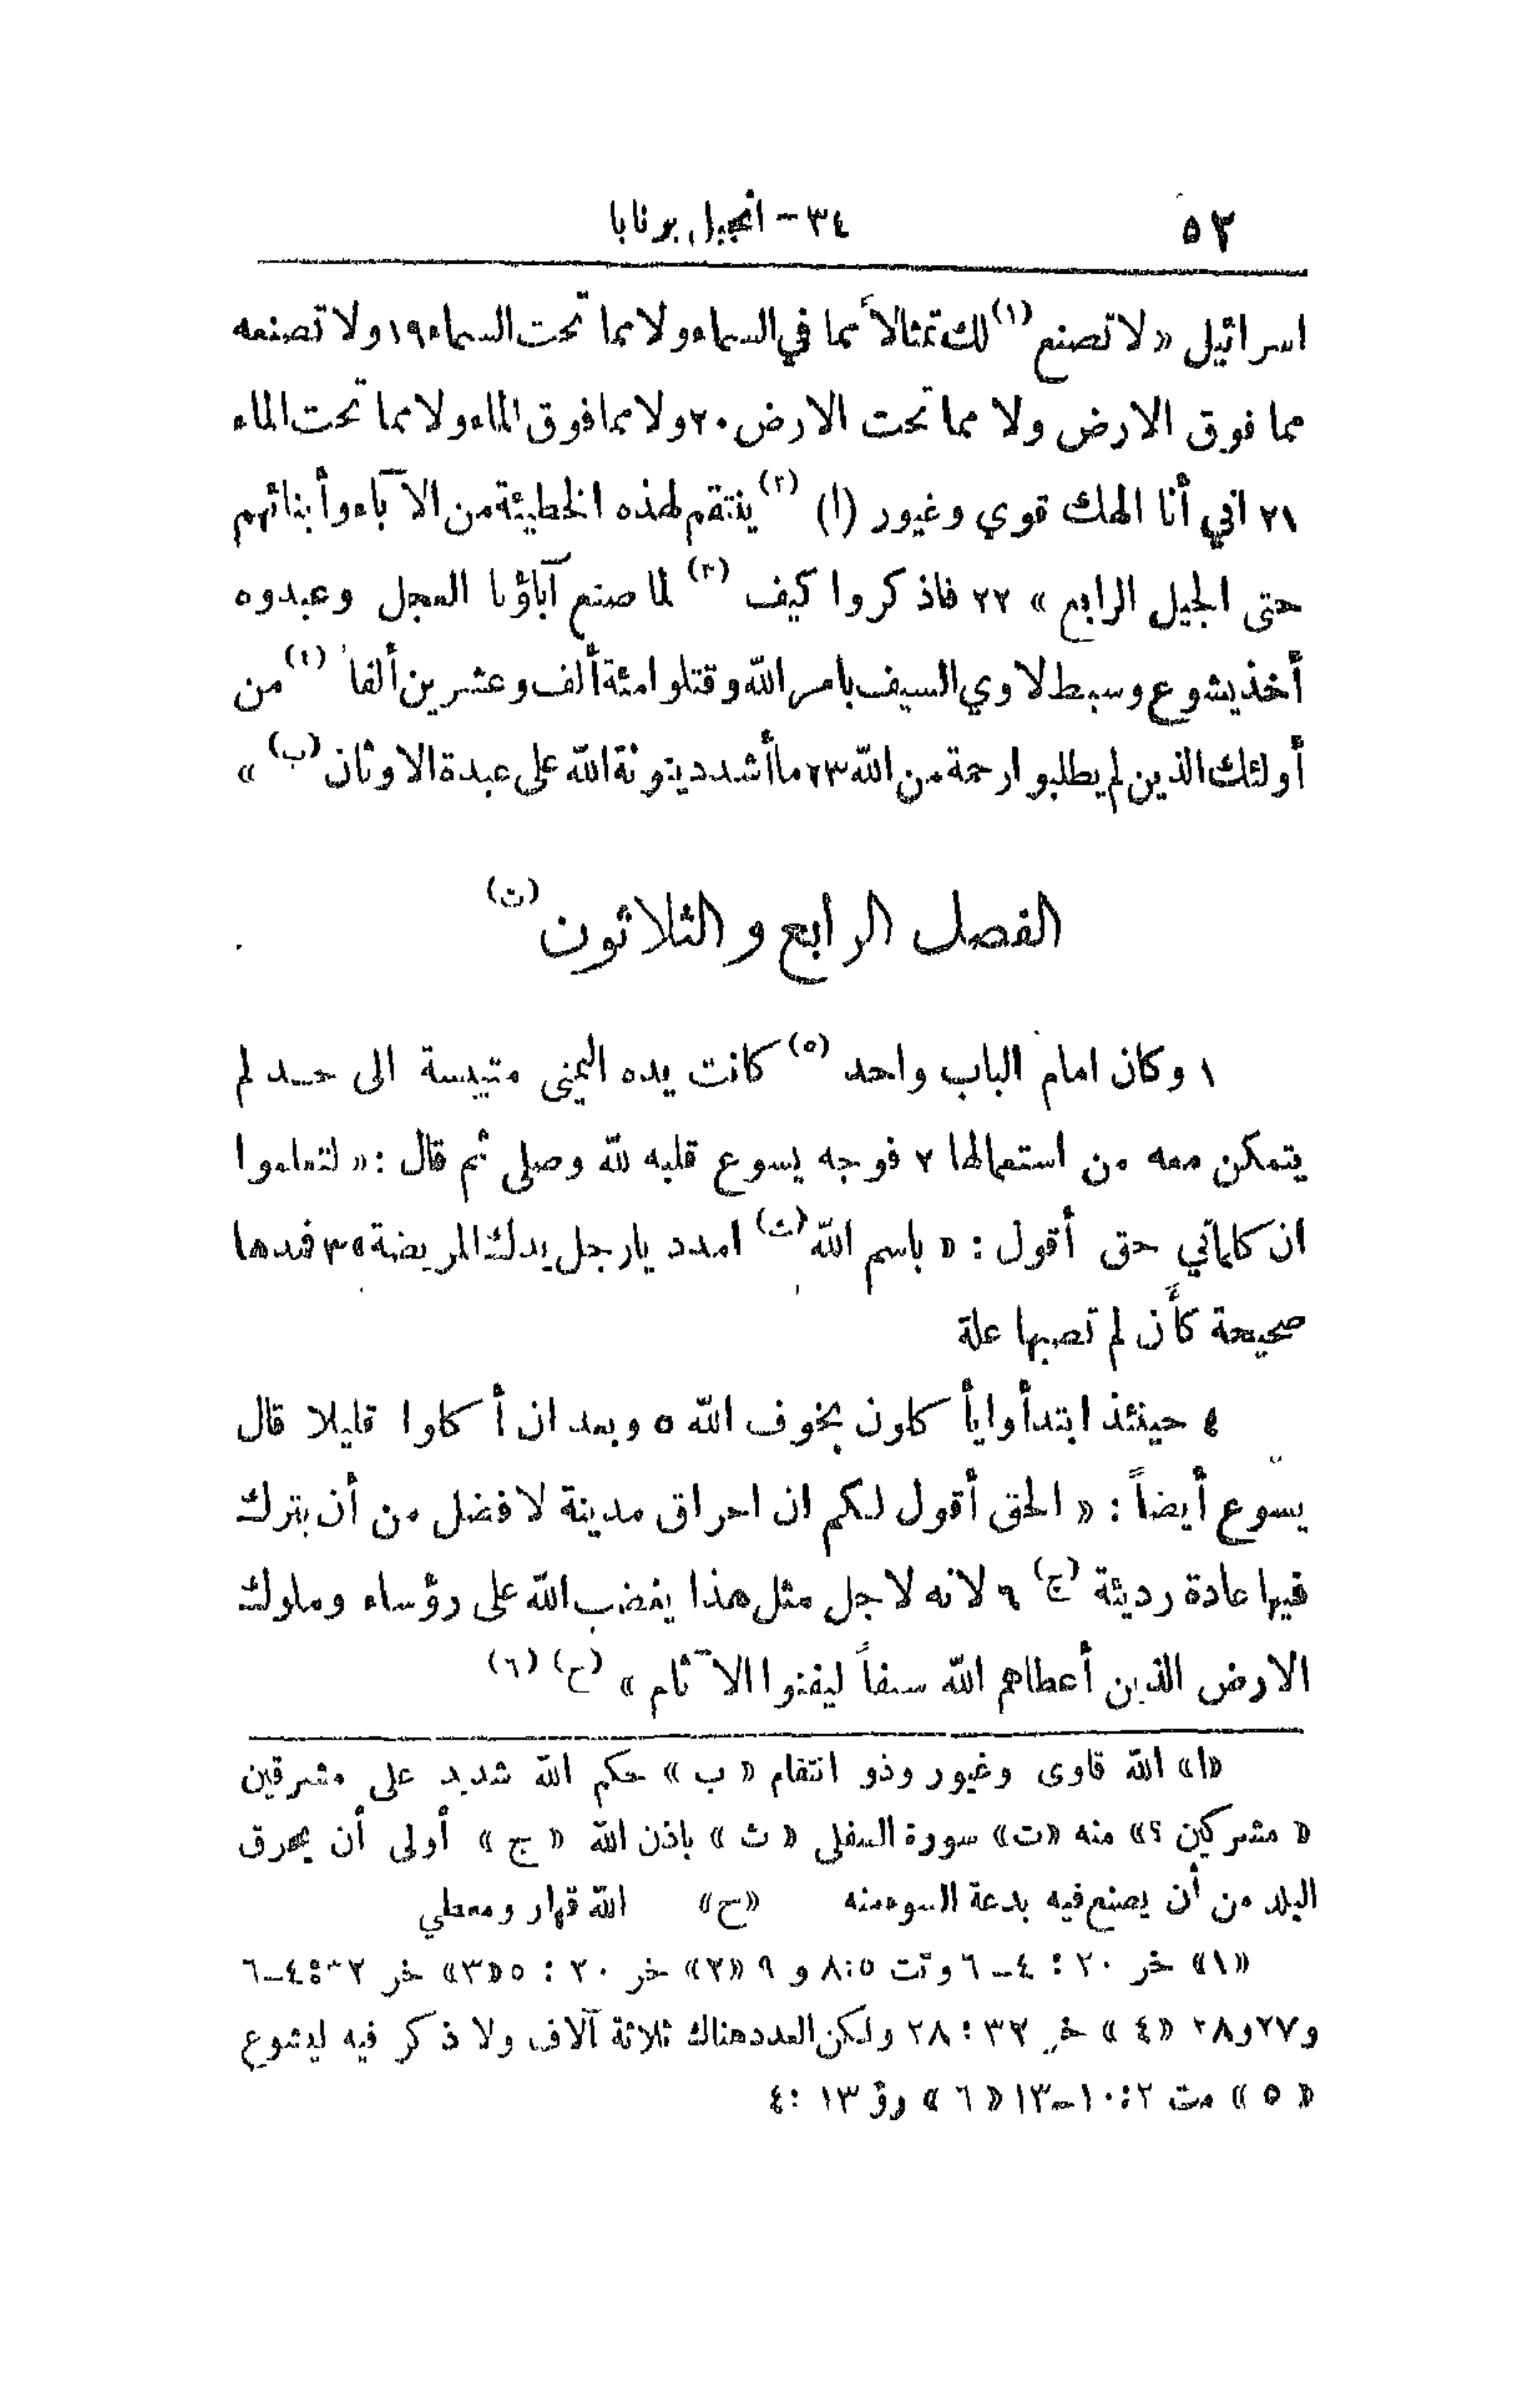 ٥٢ ٣٤ - انجيل برنابا
اسرائيل « لا تصنع (١) لك تمثالاً مما في السماء ولا مما تحت السماء ١٩ ولا تصنعه
مما فوق الارض ولا مما تحت الارض ٢٠ ولا مما فوق الماء ولا مما تحت الماء
٢١ اني أنا الهك قوي وغيور (ا) (٢) ينتقم لهذه الخطيئة من الآباء وأبنائهم
حتى الجيل الرابع » ٢٢ فاذكروا كيف (٣) لما صنع آباؤنا العجل وعبدوه
أخذ يشوع وسبط لاوي السيف بامر الله وقتلوا مئة ألف وعشرين ألفا (٤) من
أولئك الذين لم يطلبوا رحمة من الله ٢٣ ما أشد دينونة الله على عبدة الاوثان (ب) »
الفصل الرابع والثلاثون (ت)
١ وكان امام الباب واحد (٥) كانت يده اليمنى متيبسة الى حد لم
يتمكن معه من استعمالها ٢ فوجه يسوع قلبه لله وصلى ثم قال : « لتعلموا
ان كلماتي حق أقول : « باسم الله (ث) امدد يا رجل يدك المريضة » ٣ فمدها
صحيحة كأن لم تصبها علة
٤ حينئذ ابتدأوا يأكلون بخوف الله ٥ وبعد ان أكلوا قليلا قال
يسوع أيضاً : « الحق أقول لكم ان احراق مدينة لافضل من أن يترك
فيها عادة رديئة (ج) ٦ لانه لاجل مثل هذا يغضب الله على رؤساء وملوك
الارض الذين أعطاهم الله سيفاً ليفنوا الآثام » (ح) (٦)
«ا» الله قاوى وغيور وذو انتقام « ب » حكم الله شديد على مشرقين
« مشركين ؟» منه «ت» سورة السفلى « ث » باذن الله « ج » أولى أن يحرق
البلد من أن يصنع فيه بدعة السوء منه «ح» الله قهار ومعطي
«١» خر ٢٠ : ٤ـ٦ وتث ٥ : ٨ و ٩ «٢» خر ٢٠ : ٥ «٣» خر ٣٢ : ٤ـ٦
و٢٧ و٢٨ « ٤ » خر ٣٢ : ٢٨ ولكن العدد هناك ثلاثة آلاف ولا ذكر فيه ليشوع
« ٥ » مت ١٢ : ١٠ـ١٣ « ٦ » رو ١٣ : ٤